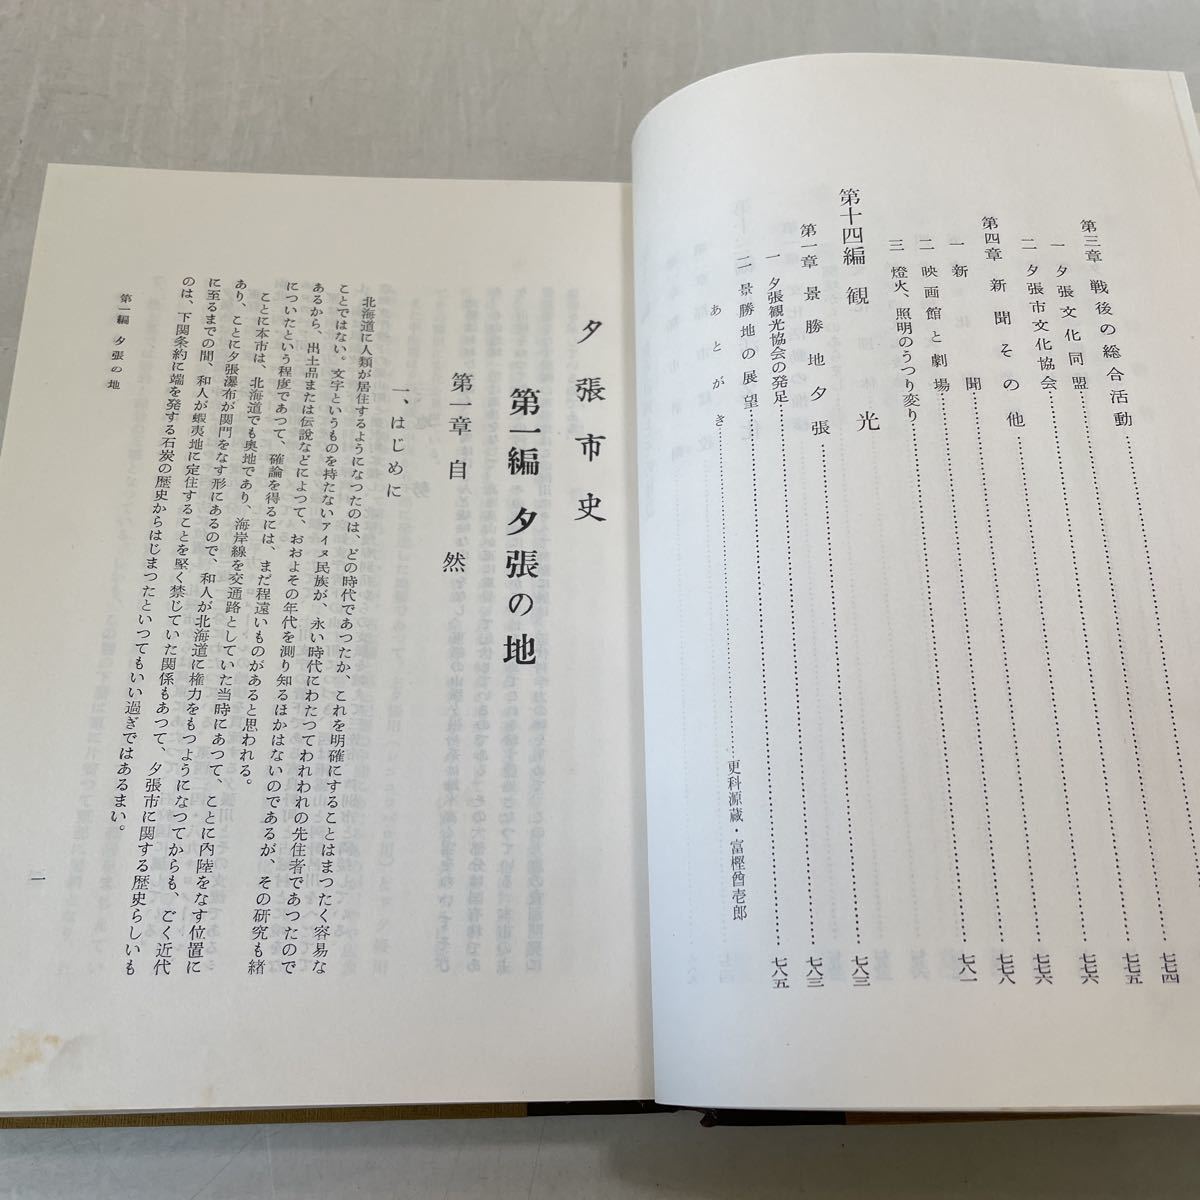 第三章 戦後の総合活動
一 夕張文化同盟……七七四
二 夕張市文化協会……七七五
第四章 新聞その他……七七六
一 新聞……七七六
二 映画館と劇場……七七八
三 燈火、照明のうつり変り……七八一
第十四編 観光
第一章 景勝地夕張……七八三
一 夕張観光協会の発足……七八三
二 景勝地の展望……七八五
あとがき……更科源蔵・富樫酋壱郎
夕張市史
第一編 夕張の地
第一章 自然
一、はじめに
北海道に人類が居住するようになつたのは、どの時代であつたか、これを明確にすることはまつたく容易な
ことではない。文字というものを持たないアイヌ民族が、永い時代にわたつてわれわれの先住者であつたので
あるから、出土品または伝説などによつて、おおよその年代を測り知るほかはないのであるが、その研究も緒
についたという程度であつて、確論を得るには、まだ程遠いものがあると思われる。
ことに本市は、北海道でも奥地であり、海岸線を交通路としていた当時にあつて、ことに内陸をなす位置に
あり、ことに夕張瀑布が関門をなす形にあるので、和人が北海道に権力をもつようになつてからも、ごく近代
に至るまでの間、和人が蝦夷地に定住することを堅く禁じていた関係もあつて、夕張市に関する歴史らしいも
のは、下関条約に端を発する石炭の歴史からはじまつたといつてもいい過ぎではあるまい。
第一編 夕張の地
一